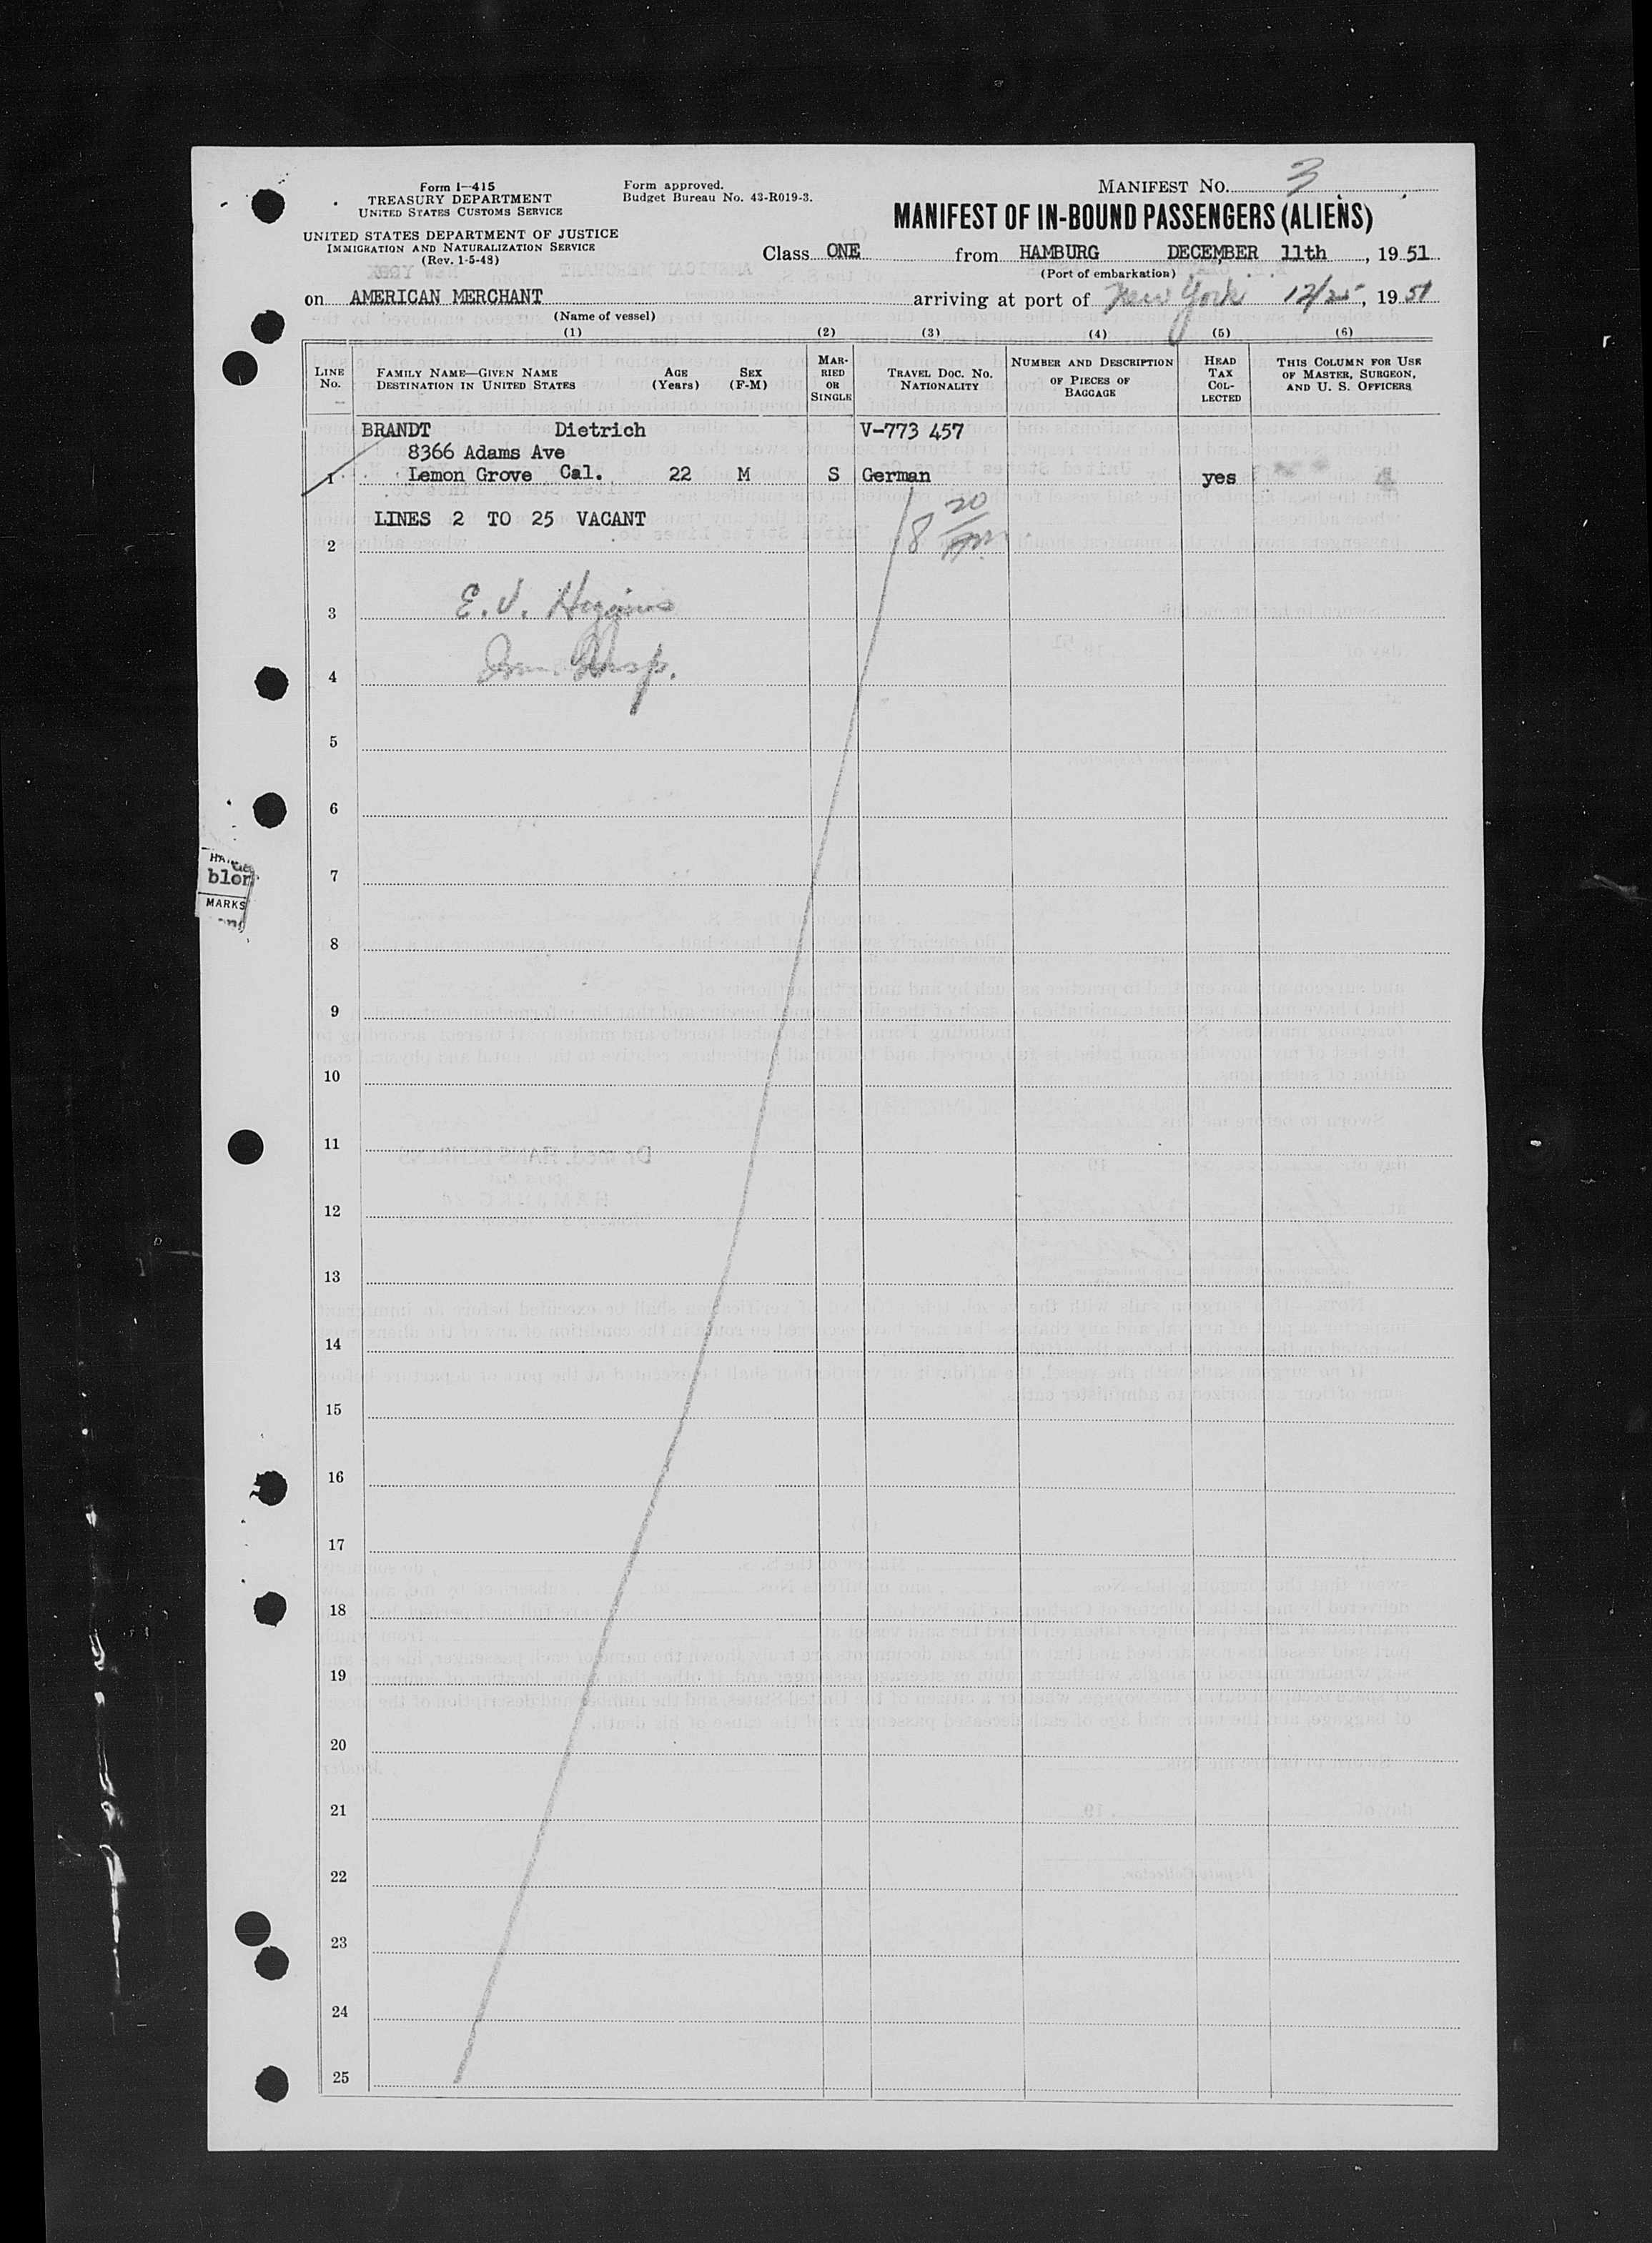 Form I-415
TREASURY DEPARTMENT
UNITED STATES CUSTOMS SERVICE
UNITED STATES DEPARTMENT OF JUSTICE
IMMIGRATION AND NATURALIZATION SERVICE
(Rev. 1-5-48)
Form approved.
Budget Bureau No. 43-R019-3.
MANIFEST NO. 3
MANIFEST OF IN-BOUND PASSENGERS (ALIENS)
Class ONE from HAMBURG DECEMBER 11th, 1951
(Port of embarkation)
on AMERICAN MERCHANT arriving at port of New York 12/25, 1951
(Name of vessel)
(1) (2) (3) (4) (5) (6)
LINE No.
FAMILY NAME—GIVEN NAME
DESTINATION IN UNITED STATES
AGE (Years)
SEX (F-M)
MARRIED OR SINGLE
TRAVEL DOC. NO. NATIONALITY
NUMBER AND DESCRIPTION OF PIECES OF BAGGAGE
HEAD TAX COLLECTED
THIS COLUMN FOR USE OF MASTER, SURGEON, AND U. S. OFFICERS
BRANDT Dietrich V-773 457
8366 Adams Ave
1 Lemon Grove Cal. 22 M S German yes
LINES 2 TO 25 VACANT
8 20
2
3 E. V. Higgins
4 Imm. Insp.
5
6
7
blor
MARKS
8
9
10
11
12
13
14
15
16
17
18
19
20
21
22
23
24
25